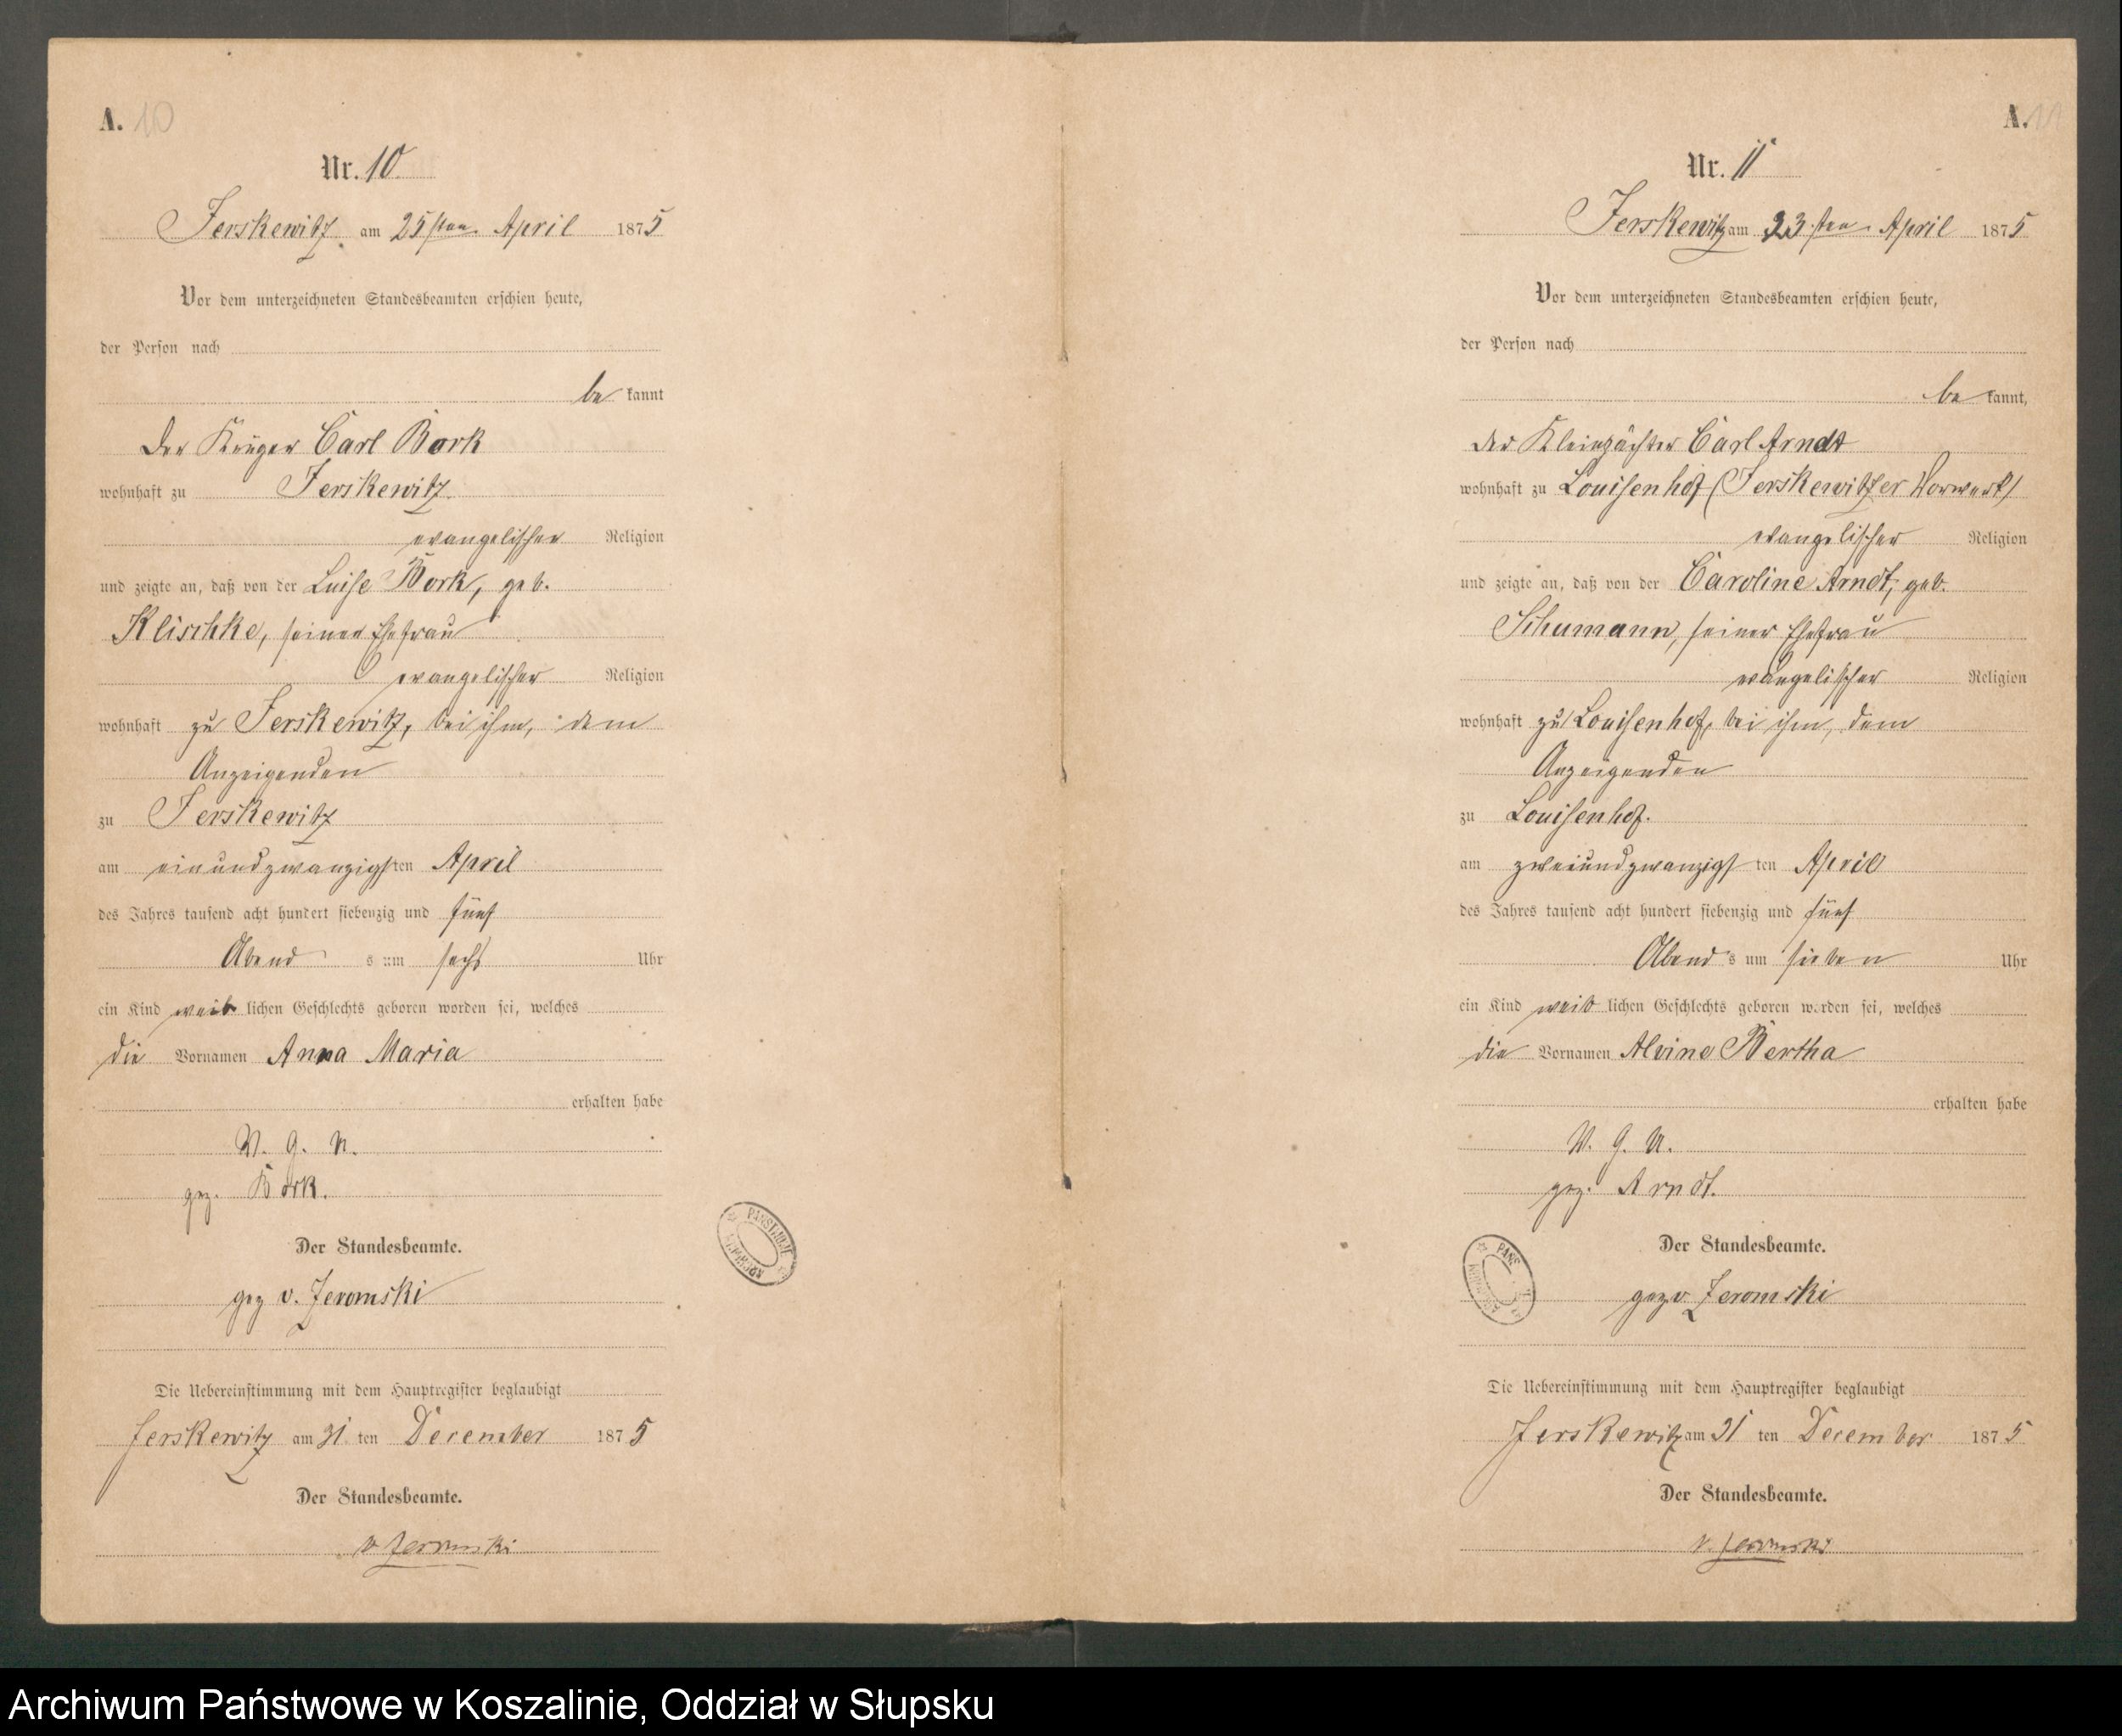 A. 10
Nr. 10
Jerskewitz am 25sten April 1875
Vor dem unterzeichneten Standesbeamten erschien heute,
der Person nach
be kannt
der Krüger Carl Bork
wohnhaft zu Jerskewitz
evangelischer Religion
und zeigte an, daß von der Luise Bork, geb.
Klischke, seiner Ehefrau
evangelischer Religion
wohnhaft zu Jerskewitz, bei ihm, dem
Anzeigenden
zu Jerskewitz
am einundzwanzigsten April
des Jahres tausend acht hundert siebenzig und fünf
Abend s um sechs Uhr
ein Kind weib lichen Geschlechts geboren worden sei, welches
die Vornamen Anna Maria
erhalten habe
V. G. U.
gez. Bork.
Der Standesbeamte.
gez v. Jeromski
Die Uebereinstimmung mit dem Hauptregister beglaubigt
Jerskewitz am 31 ten December 1875
Der Standesbeamte.
v Jeromski
PAŃSTWOWE ARCHIWUM
A. 11
Nr. 11
Jerskewitz am 23sten April 1875
Vor dem unterzeichneten Standesbeamten erschien heute,
der Person nach
be kannt,
der Kleinpächter Carl Arndt
wohnhaft zu Louisenhof (Jerskewitzer Vorwerk)
evangelischer Religion
und zeigte an, daß von der Caroline Arndt, geb.
Schumann, seiner Ehefrau
evangelischer Religion
wohnhaft zu Louisenhof, bei ihm, dem
Anzeigenden
zu Louisenhof.
am zweiundzwanzigs ten April
des Jahres tausend acht hundert siebenzig und fünf
Abend s um sieben Uhr
ein Kind weib lichen Geschlechts geboren worden sei, welches
die Vornamen Alvine Bertha
erhalten habe
V. G. U.
gez. Arndt.
Der Standesbeamte.
gez v. Jeromski
Die Uebereinstimmung mit dem Hauptregister beglaubigt
Jerskewitz am 31 ten December 1875
Der Standesbeamte.
v. Jeromski
Archiwum Państwowe w Koszalinie, Oddział w Słupsku